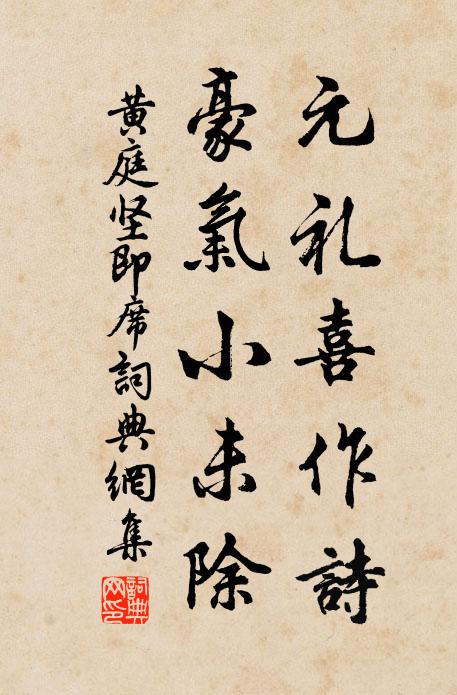 元礼喜作詩
豪氣小未除
黄庭坚即席詞典網集
詞典网印